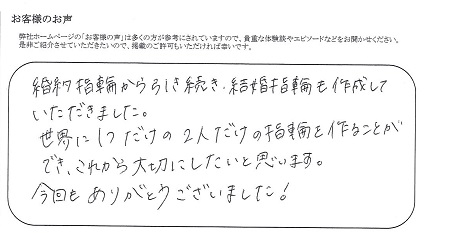 お客様のお声
弊社ホームページの「お客様の声」は多くの方が参考にされていますので、貴重な体験談やエピソードなどをお聞かせください。
是非ご紹介させていただきたいので、掲載のご許可もいただければ幸いです。
婚約指輪から引き続き、結婚指輪も作成して
いただきました。
世界に1つだけの2人だけの指輪を作ることが
でき、これから大切にしたいと思います。
今回もありがとうございました!